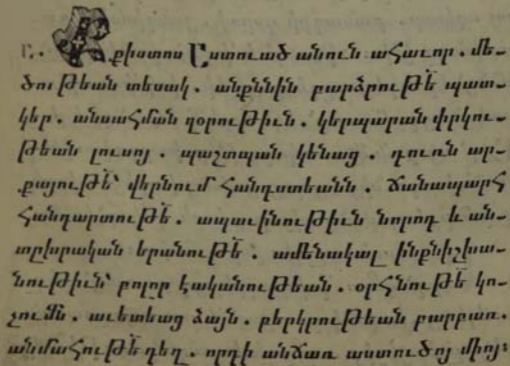 Ր. Քրիստոս Աստուած անուն ահաւոր. մե֊
ծութեան տեսակ. անքննին բարձրութե՟ պատ֊
կեր. անսահման զօրութիւն. կերպարան փրկու֊
թեան լուսոյ. պաշտպան կենաց. դուռն ար֊
քայութե՟՝ վերնում հանգստեանն. ճանապարհ
հանդարտութե՟. ապաւինութիւն նորոգ և ան֊
տրխրական երանութե՟. ամենակալ ինքնիշխա֊
նութիւն՝ բոլոր էականութեան. օրհնութե՟ կո֊
չումն. աւետեաց ձայն. բերկրութեան բարբառ.
անմահութե՟ դեղ. որդի անճառ աստուծոյ միոյ։